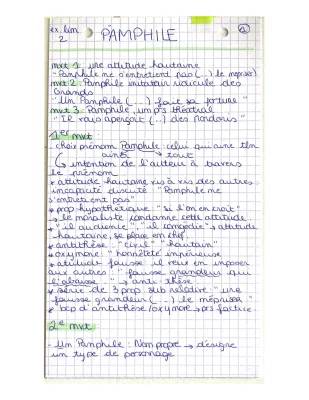 ex. lin
2
PAMPHILE
②
mvt 1 : une attitude hautaine
"Pamphile ne s'entretient pas (...) le mépriser)
mvt 2 : Pamphile imitateur ridicule des
Grands
"Un Pamphile (...) fait sa fortune"
mvt 3 : Pamphile, un théâtral
"Et vais aperçoit (...) des"
1er mvt
- choix prénom Pamphile : celui qui aime tlm
aime tout
↳ intention de l'auteur à travers
le prénom
* attitude hautaine vis à vis des autres
incapacité discuté : "Pamphile ne
s'entretient pas"
* prop hypothétique : "si l'on en croit"
↳ le moraliste condamne cette attitude
* "il audience", "il congédie" → attitude
hautaine, se place en chef.
* antithèse : "civil" "hautain"
* oxymore : "honnêteté impérieuse
* attitude fausse il veut en imposer
aux autres : "fausse grandeur qui
l'abaisse" → anti-thèse
* série de 3 prop. sub relative : "une
fausse grandeur (...) le mépriser"
* bcp d'antithèse/oxymore → prs factice
2e mvt
- Un Pamphile : Nom propre → désigne
un type de personnage